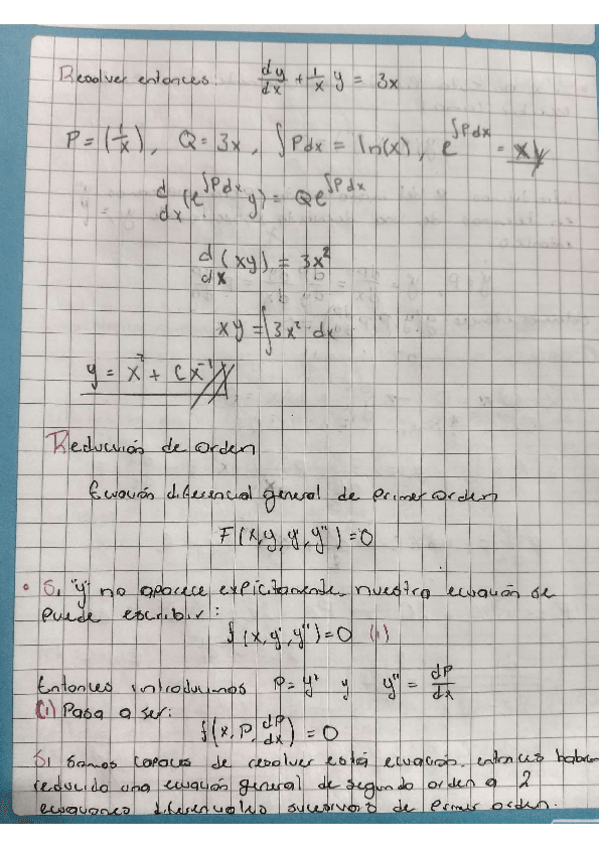 Resolver entonces: dy/dx + 1/x y = 3x
P = (1/x), Q = 3x, ∫Pdx = ln(x), e^∫Pdx = xy
d/dx (e^∫Pdx y) = Qe^∫Pdx
d/dx (xy) = 3x²
xy = ∫3x² dx
y = x² + Cx⁻¹
Reducción de orden
Ecuación diferencial general de primer orden
F(x, y, y', y'') = 0
• Si "y" no aparece explicitamente, nuestra ecuación se
puede escribir:
f(x, y', y'') = 0 (1)
Entonces introducimos P = y' y y'' = dP/dx
(1) Pasa a ser:
f(x, P, dP/dx) = 0
Si somos capaces de resolver está ecuación, entonces habrem
reducido una ecuación general de segundo orden a 2
ecuaciones diferenciales sucesivas de primer orden.